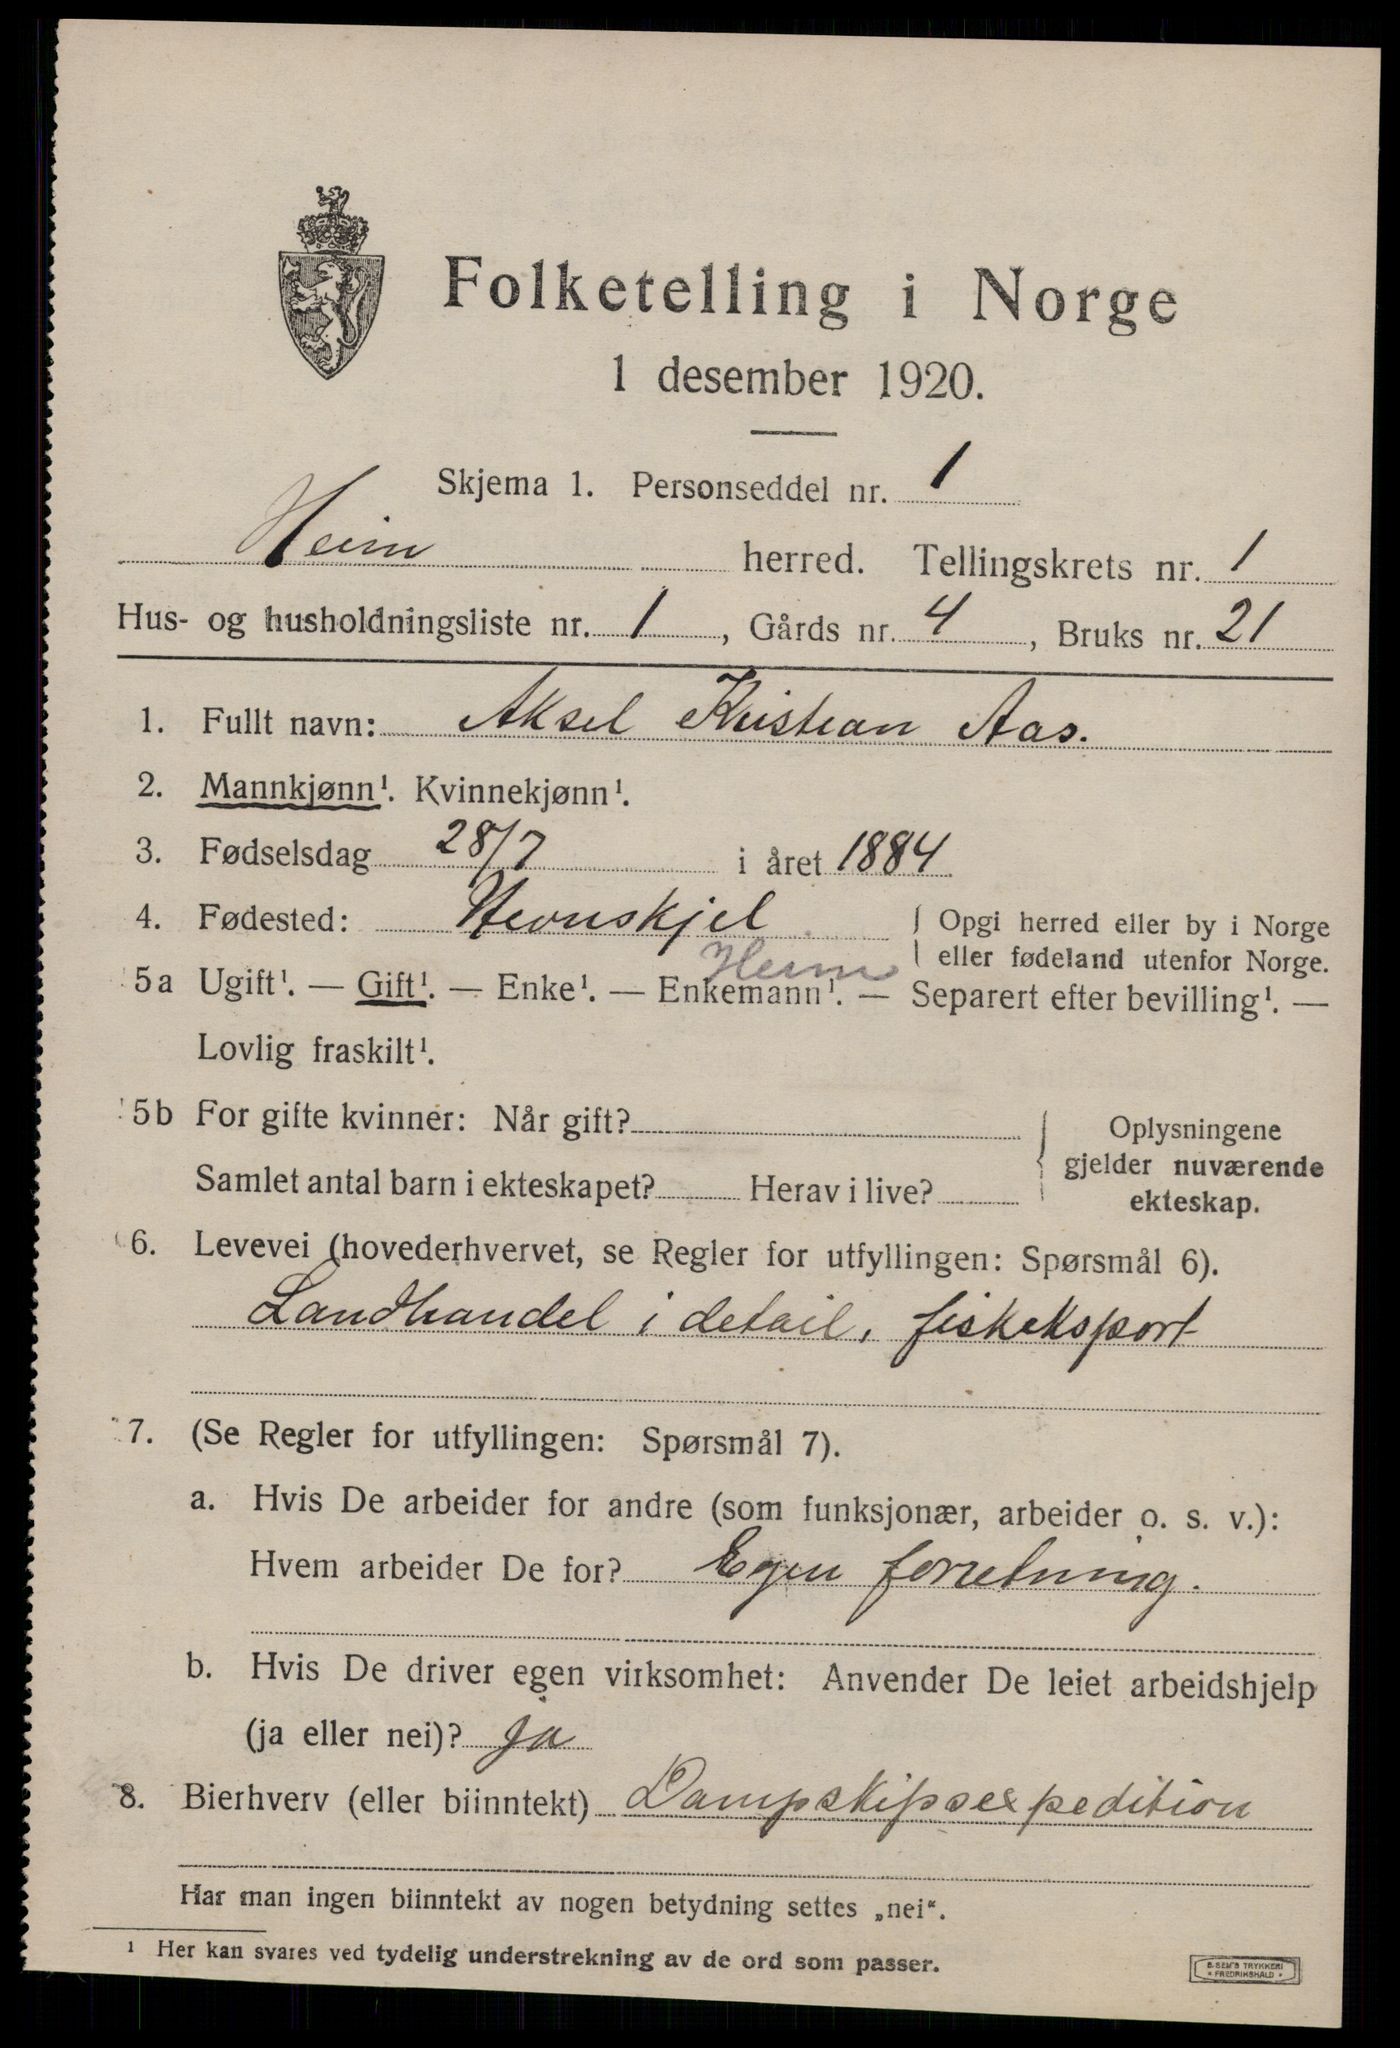 Folketelling i Norge
1 desember 1920.
Skjema 1. Personseddel nr. 1
Heim herred. Tellingskrets nr. 1
Hus- og husholdningsliste nr. 1, Gårds nr. 4, Bruks nr. 21
1. Fullt navn: Aksel Kristian Aas.
2. Mannkjønn¹. Kvinnekjønn¹.
3. Fødselsdag 28/7 i året 1884
4. Fødested: Hevnskjel { Opgi herred eller by i Norge
eller fødeland utenfor Norge.
Heim
5a Ugift¹. — Gift¹. — Enke¹. — Enkemann¹. — Separert efter bevilling¹. —
Lovlig fraskilt¹.
5b For gifte kvinner: Når gift? { Oplysningene
gjelder nuværende
Samlet antal barn i ekteskapet? Herav i live? ekteskap.
6. Levevei (hovederhvervet, se Regler for utfyllingen: Spørsmål 6).
Landhandel i detail, fiskeksport
7. (Se Regler for utfyllingen: Spørsmål 7).
a. Hvis De arbeider for andre (som funksjonær, arbeider o. s. v.):
Hvem arbeider De for? Egen forretning.
b. Hvis De driver egen virksomhet: Anvender De leiet arbeidshjelp
(ja eller nei)? Ja
8. Bierhverv (eller biinntekt) Dampskipsexpedition
Har man ingen biinntekt av nogen betydning settes „nei“.
¹ Her kan svares ved tydelig understrekning av de ord som passer.
E. SEM'S TRYKKERI
* FREDRIKSHALD *